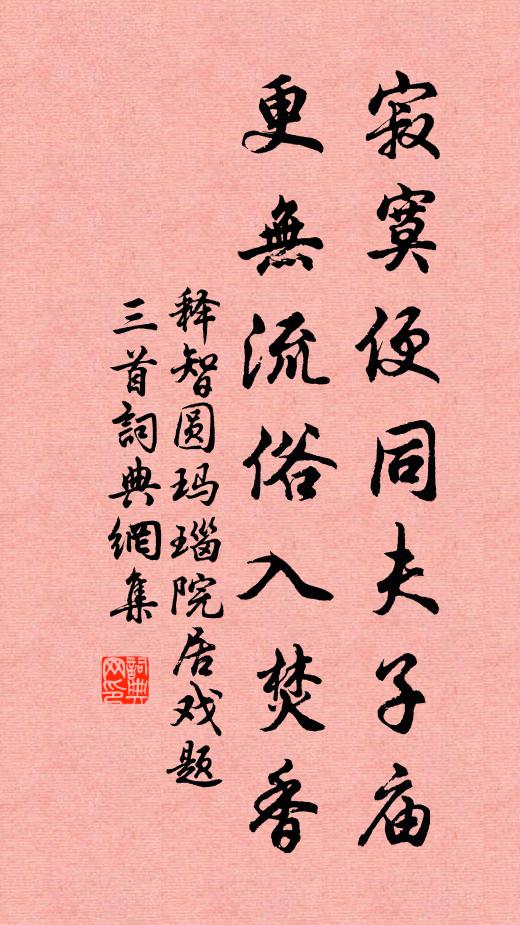 寂寞便同夫子庙
更無流俗入焚香
释智圆玛瑙院居戏题
三首詞典網集
詞典网印